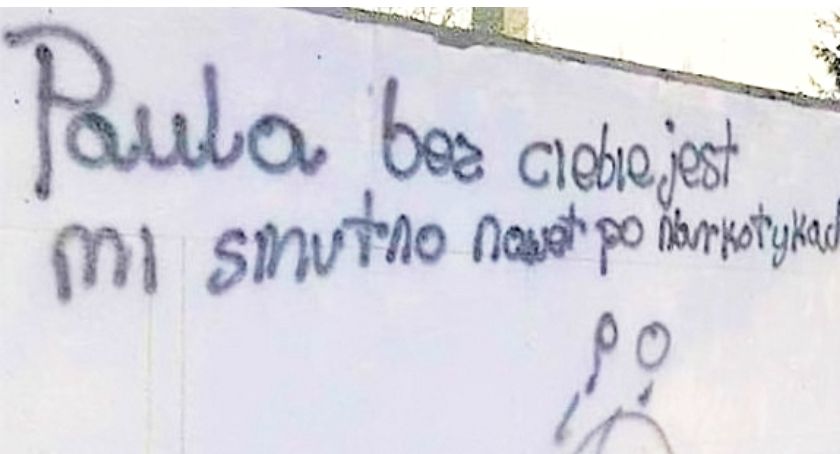 Paula bez ciebie jest
mi smutno nawet po narkotykac